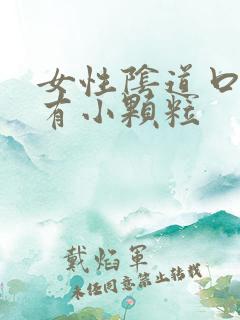 女性陰道口
有小顆粒
戴焰軍
未经同意禁止转载